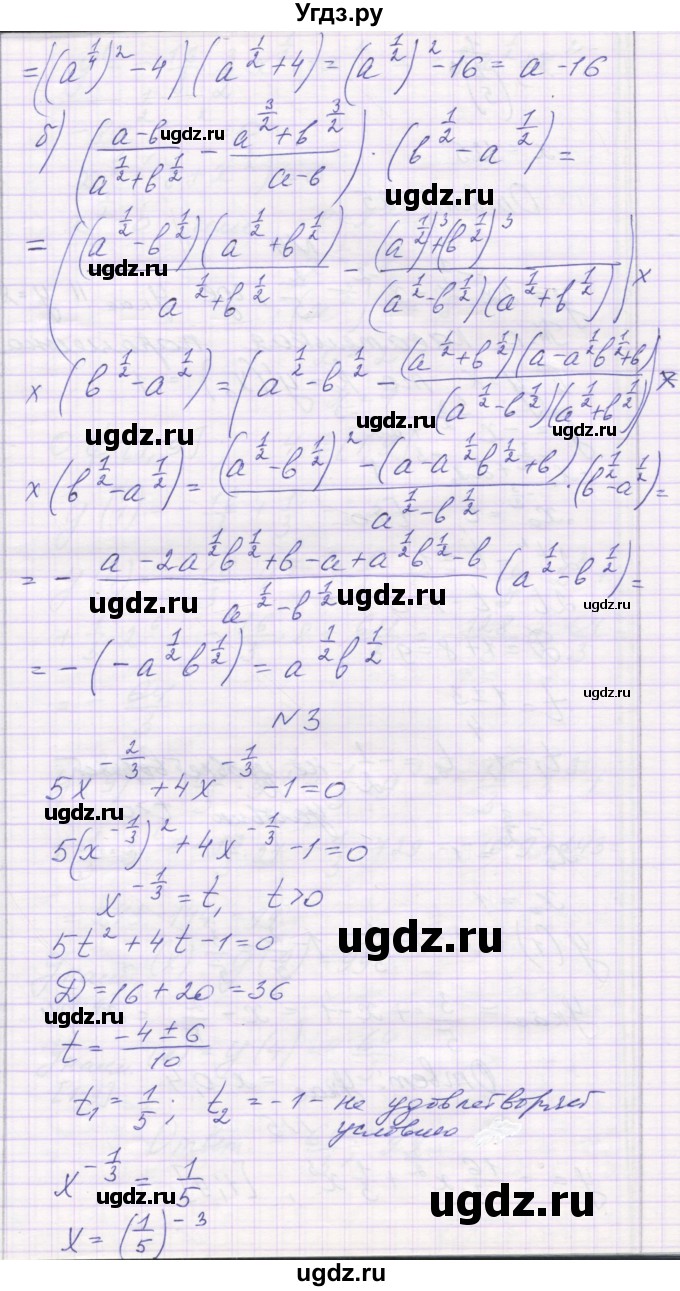 Угдз.ру
=((a^{1/4})^2-4)(a^{1/2}+4)=(a^{1/2})^2-16=a-16
б) ((a-в)/(a^{1/2}+в^{1/2})-(a^{3/2}+в^{3/2})/(a-в))·(в^{1/2}-a^{1/2})=
ugdz.ru
ugdz.ru
ugdz.ru
=((a^{1/2}-в^{1/2})(a^{1/2}+в^{1/2})/(a^{1/2}+в^{1/2})-((a^{1/2})^3+(в^{1/2})^3)/((a^{1/2}-в^{1/2})(a^{1/2}+в^{1/2})))×
ugdz.ru
ugdz.ru
×(в^{1/2}-a^{1/2})=(a^{1/2}-в^{1/2}-(a^{1/2}+в^{1/2})(a-a^{1/2}в^{1/2}+в)/((a^{1/2}-в^{1/2})(a^{1/2}+в^{1/2})))×
ugdz.ru
ugdz.ru
ugdz.ru
×(в^{1/2}-a^{1/2})=((a^{1/2}-в^{1/2})^2-(a-a^{1/2}в^{1/2}+в))/(a^{1/2}-в^{1/2})·(в^{1/2}-a^{1/2})=
=-(a-2a^{1/2}в^{1/2}+в-a+a^{1/2}в^{1/2}-в)/(a^{1/2}-в^{1/2})(a^{1/2}-в^{1/2})=
ugdz.ru
ugdz.ru
ugdz.ru
=-(-a^{1/2}в^{1/2})=a^{1/2}в^{1/2}
ugdz.ru
№3
5x^{-2/3}+4x^{-1/3}-1=0
ugdz.ru
5(x^{-1/3})^2+4x^{-1/3}-1=0
x^{-1/3}=t, t>0
ugdz.ru
5t^2+4t-1=0
Д=16+20=36
ugdz.ru
t=(-4±6)/10
t_1=1/5; t_2=-1- не удовлетворяет
условию
x^{-1/3}=1/5
ugdz.ru
ugdz.ru
x=(1/5)^{-3}
ugdz.ru
ugdz.ru